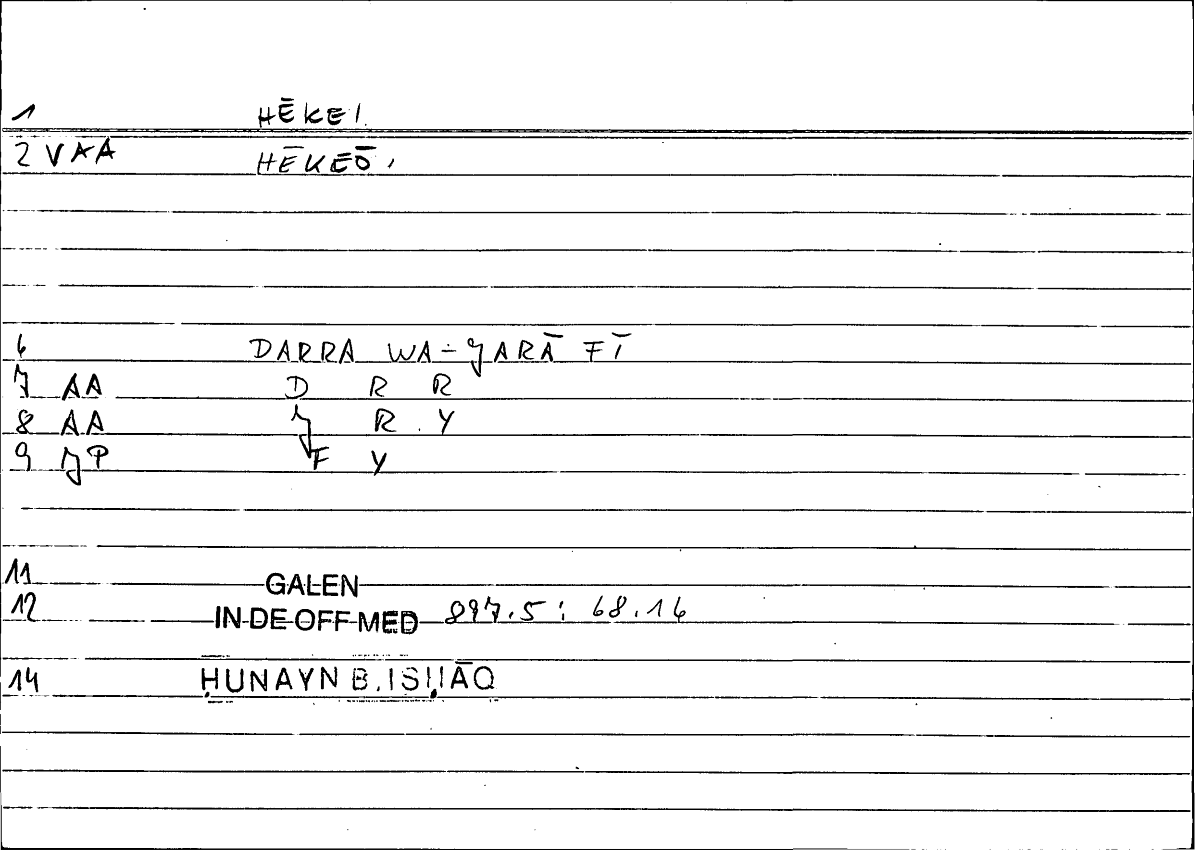 1 HĒKEI.
2 VAA HĒKEŌ,
6 DARRA WA-JARĀ FĪ
7 AA D R R
8 AA J R Y
9 JP F Y
11 GALEN
12 IN DE OFF MED 897.5 : 68.16
14 ḤUNAYN B. ISḤĀQ